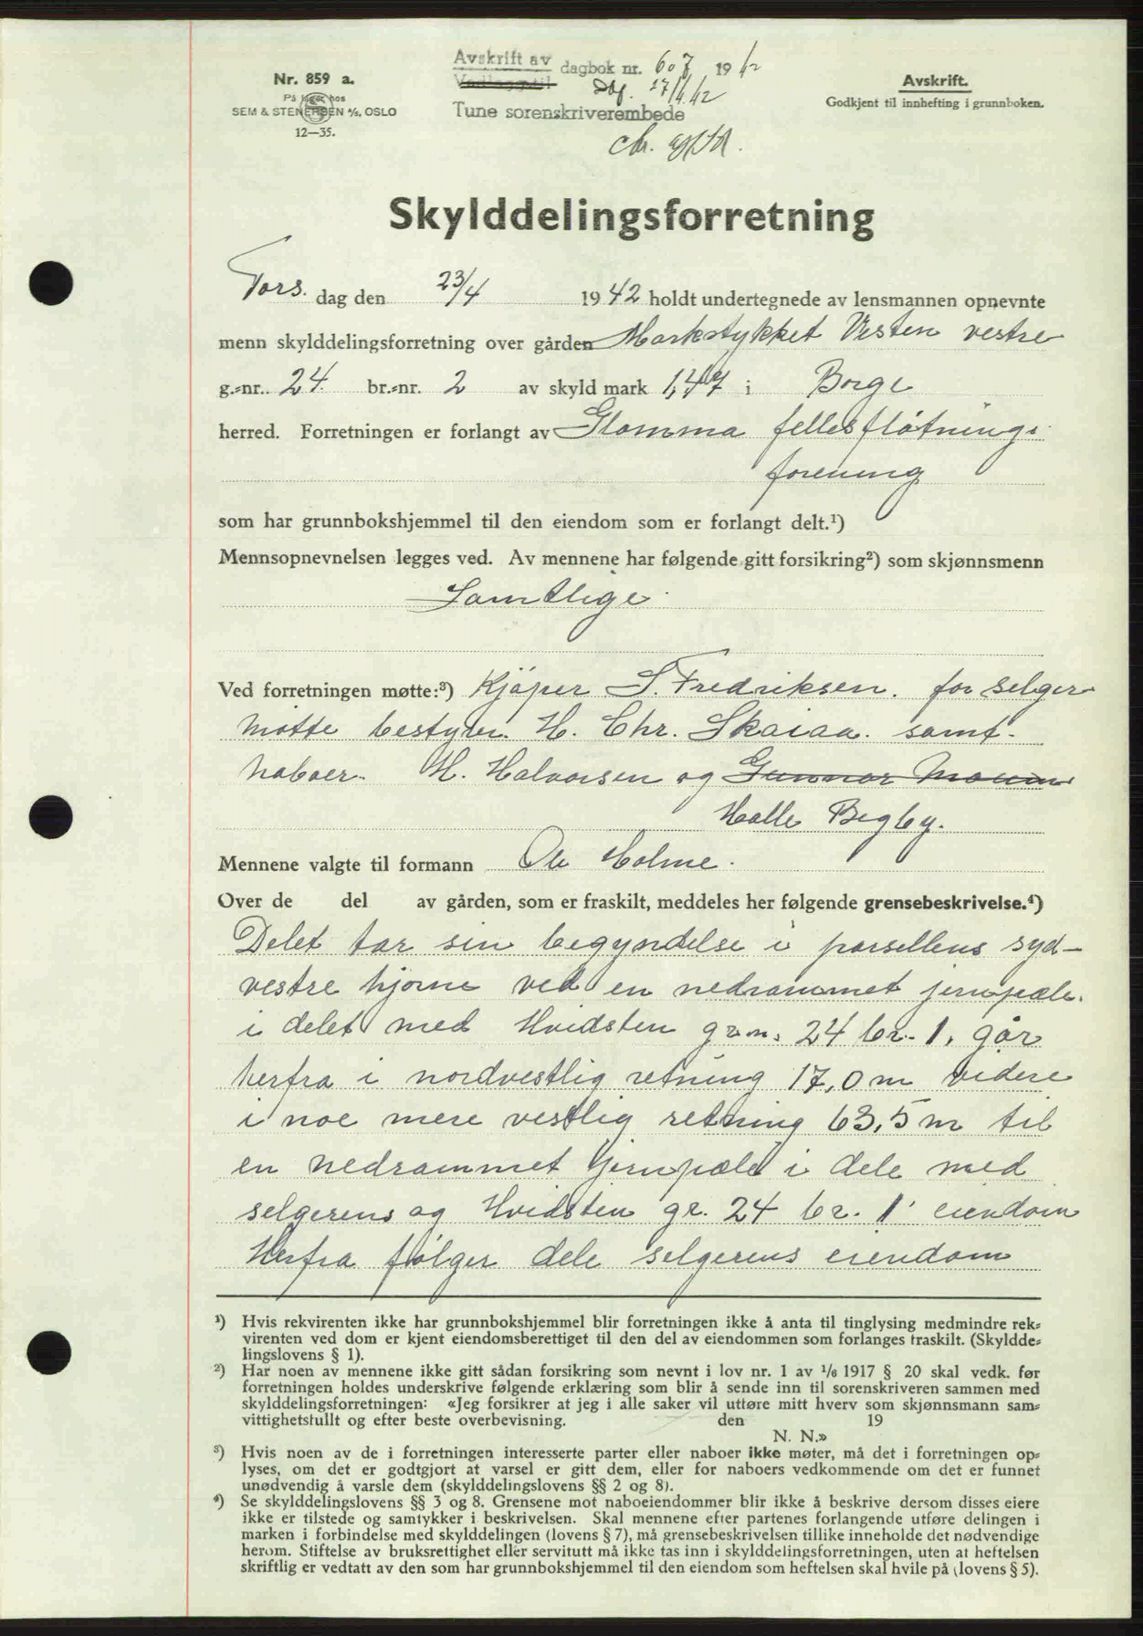 Nr. 859 a.
På lager hos
SEM & STENERSEN A/S, OSLO
12—35.
Avskrift av
Vedlegg til
dagbok nr. 607 1942
Dbf. 27/4.42
Tune sorenskriverembede
Avskrift.
Godkjent til innhefting i grunnboken.
Skylddelingsforretning
Tors. dag den 23/4 1942 holdt undertegnede av lensmannen opnevnte
menn skylddelingsforretning over gården Markstykket Visten vestre
g.-nr. 24 br.-nr. 2 av skyld mark 1,47 i Borge
herred. Forretningen er forlangt av Glomma fellesfløtnings
forening
som har grunnbokshjemmel til den eiendom som er forlangt delt.¹)
Mennsopnevnelsen legges ved. Av mennene har følgende gitt forsikring²) som skjønnsmenn
Samtlige
Ved forretningen møtte:³) Kjøper S. Fredriksen. for selger
møtte bestyrer H. Chr. Skaiaa. samt
naboer. H. Halvorsen og Gunnar
Halle Begby.
Mennene valgte til formann Ole Holme.
Over de del av gården, som er fraskilt, meddeles her følgende grensebeskrivelse.⁴)
Delet tar sin begyndelse i parsellens syd-
vestre hjørne ved en nedrammet jernpæle.
i delet med Hvidsten gr.n. 24 br. 1. går
herfra i nordvestlig retning 17,0 m videre
i noe mere vestlig retning 63,5 m til
en nedrammet jernpæle i dele med
selgerens og Hvidsten gr. 24 br. 1 eiendom
Herfra følger dele selgerens eiendom
¹) Hvis rekvirenten ikke har grunnbokshjemmel blir forretningen ikke å anta til tinglysing medmindre rek-
virenten ved dom er kjent eiendomsberettiget til den del av eiendommen som forlanges fraskilt. (Skyldde-
lingslovens § 1).
²) Har noen av mennene ikke gitt sådan forsikring som nevnt i lov nr. 1 av 1/6 1917 § 20 skal vedk. før
forretningen holdes underskrive følgende erklæring som blir å sende inn til sorenskriveren sammen med
skylddelingsforretningen: «Jeg forsikrer at jeg i alle saker vil utføre mitt hverv som skjønnsmann sam-
vittighetsfullt og efter beste overbevisning. den 19
N. N.»
³) Hvis noen av de i forretningen interesserte parter eller naboer ikke møter, må det i forretningen op-
lyses, om det er godtgjort at varsel er gitt dem, eller for naboers vedkommende om det er funnet
unødvendig å varsle dem (skylddelingslovens §§ 2 og 8).
⁴) Se skylddelingslovens §§ 3 og 8. Grensene mot naboeiendommer blir ikke å beskrive dersom disses eiere
ikke er tilstede og samtykker i beskrivelsen. Skal mennene efter partenes forlangende utføre delingen i
marken i forbindelse med skylddelingen (lovens § 7), må grensebeskrivelsen tillike inneholde det nødvendige
herom. Stiftelse av bruksrettighet eller servitutt må ikke tas inn i skylddelingsforretningen, uten at heftelsen
skriftlig er vedtatt av den som har grunnbokshjemmel til den eiendom som heftelsen skal hvile på (lovens § 5).